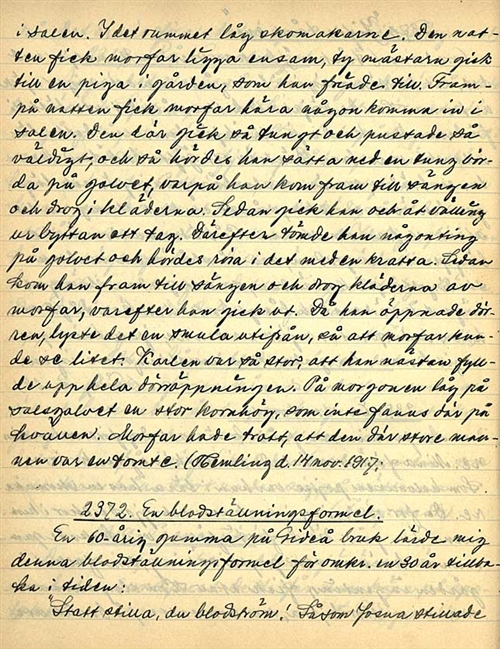 i salen. I det rummet låg skomakarne. Den nat-
ten fick morfar ligga ensam, ty mästarn gick
till en piga i gården, som han friade till. Fram-
på natten fick morfar höra någon komma in i
salen. Den där gick så tungt och pustade så
väldigt, och så hördes han sätta ned en tung bör-
da på golvet, varpå han kom fram till sängen
och drog i kläderna. Sedan gick han och åt välling
ur byttan ett tag. Därefter tömde han någonting
på golvet och hördes röra i det med en kratta. Sedan
kom han fram till sängen och drog kläderna av
morfar, varefter han gick ut. Då han öppnade dör-
ren, lyste det en smula utifrån, så att morfar kun-
de se litet. Karlen var så stor, att han nästan fyll-
de upp hela dörröppningen. På morgonen låg på
salsgolvet en stor kornhög, som inte fanns där på
kvällen. Morfar hade trott, att den där store man-
nen var en tomte. (Hemling d. 14 nov. 1917.
2372. En blodställningsformel.
En 60-årig gumma på Gideå bruk lärde mig
denna blodställningsformel för omkr. en 30 år tillba-
ka i tiden:
"Statt stilla, du blodström! Såsom Josua stillade